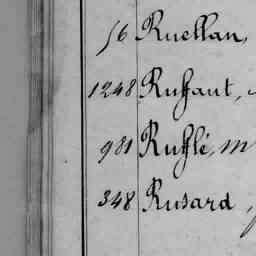 56 Ruellan,
1248 Ruffaut,
981 Rufflé, m
348 Rusard,